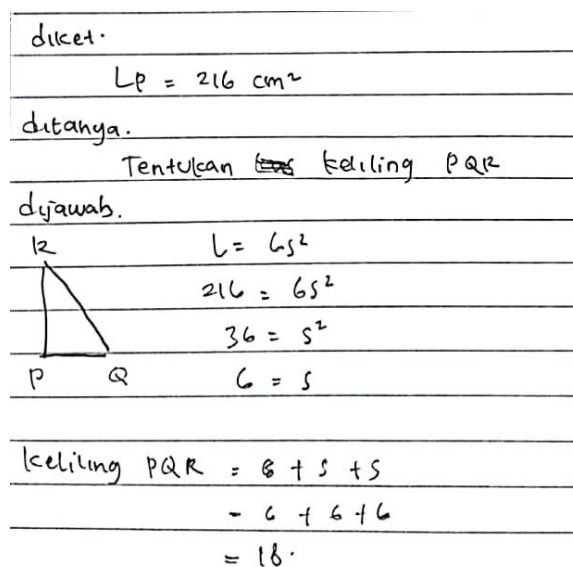 diket.
Lp = 216 cm²
ditanya.
Tentukan keliling PQR
dijawab.
R
L = 6s²
216 = 6s²
36 = s²
P Q
6 = s
keliling PQR = s + s + s
= 6 + 6 + 6
= 18.